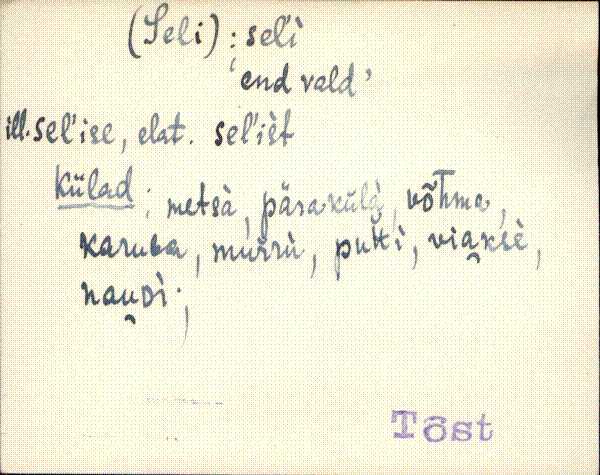 (Seli) : sel'ì
'end vald'
ill. sel'ise, elat. sel'ièt
Külad : metsà, pärakülà, võhma,
karuba, murrù, puttì, viaksè,
naudì;
Tõst